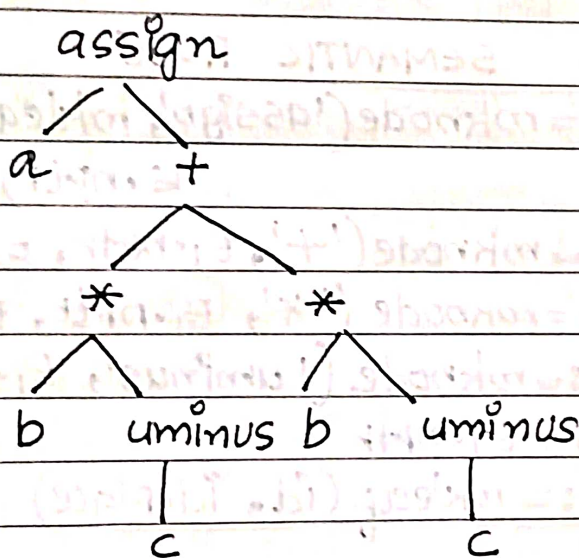 assign
a +
* *
b uminus b uminus
c c